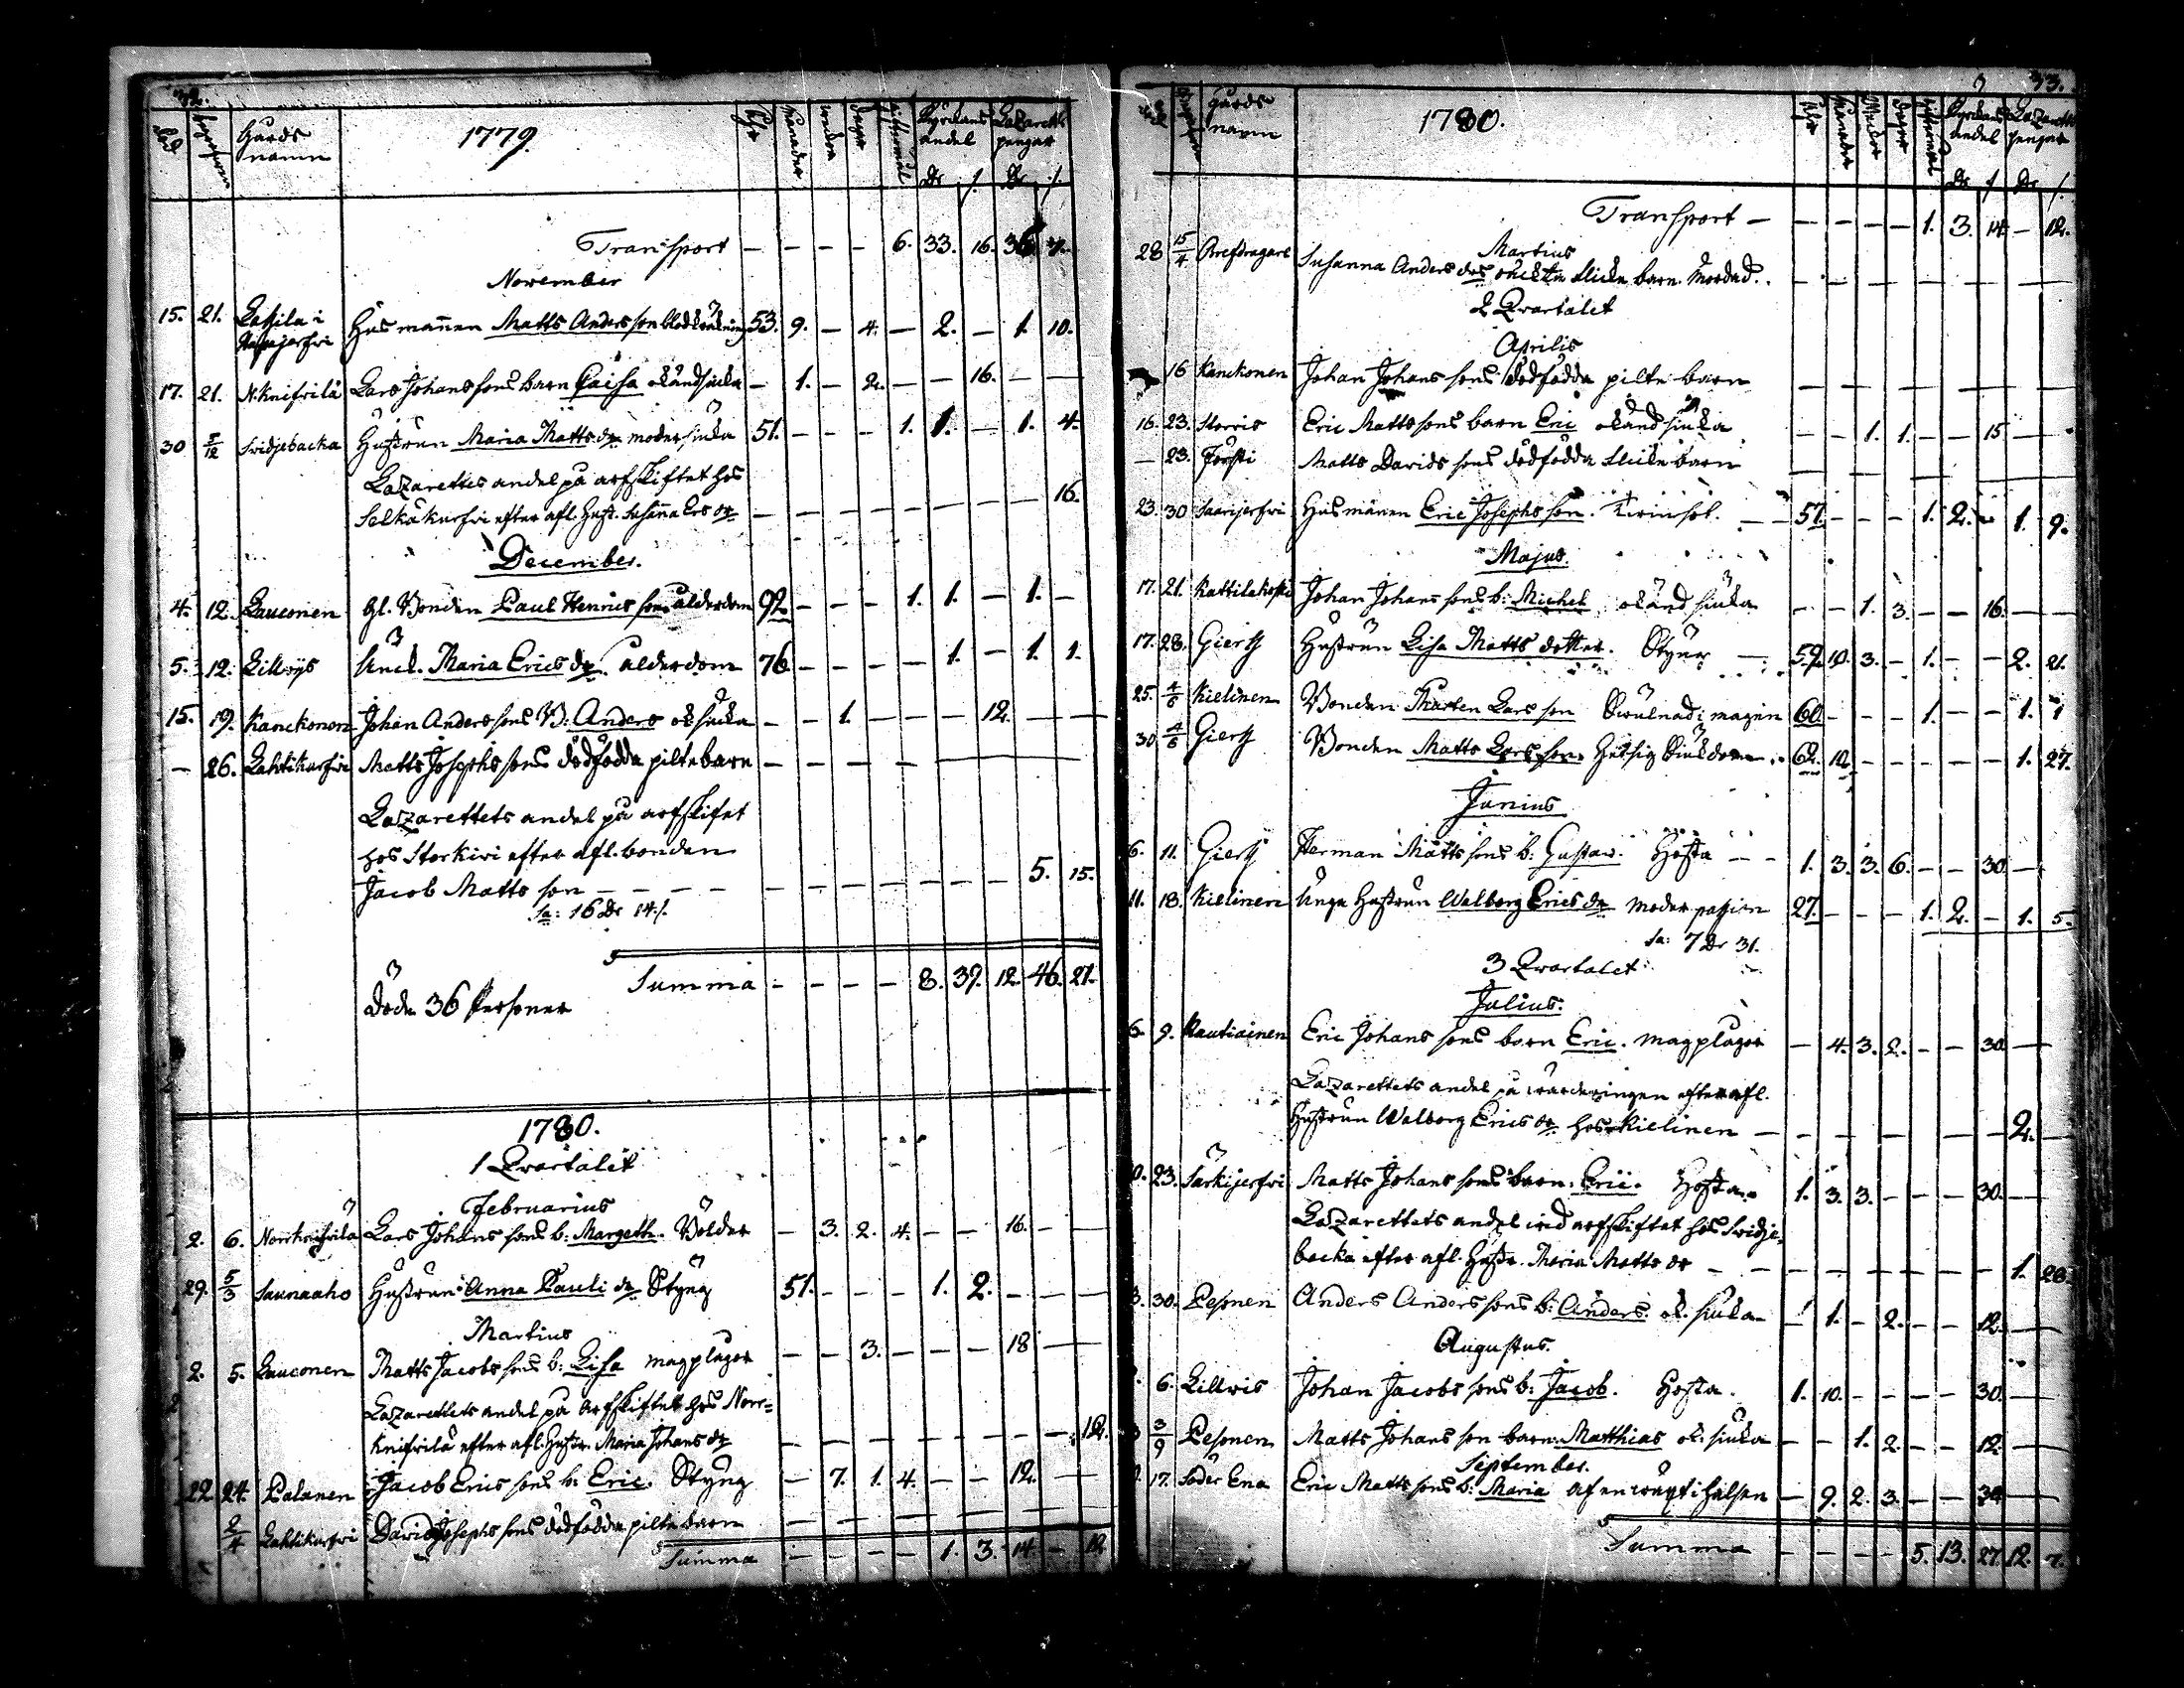 32.
död begrafven Gårds namn 1779. Åhr Månader wekor dagar giftermål Kyrckans andel Lazaretts pengar
Dr /. Dr /.
Transport — — — — 6. 33. 16. 36.
November
15. 21. Lassila i Husmannen Matts Andersson blodstörtning 53. 9. — 4. — 2. — 1. 10.
17. 21. N. Knifsilä Lars Johanssons barn Caisa okänd siuka — 1. — 2. — — 16. — —
30 5/12 Svidjebacka Hustrun Maria Matts dr modersiuka 51. — — — 1. 1. — 1. 4.
Lazarettes andel på arfskiftet hos 16.
Selkäkurfvi efter afl. Hust. Susanna Ers dr — — — — — — — —
December.
4. 12. Lauconen Gl. Bonden Paul Henricsson ålderdom 92 — — — 1. 1. — 1. —
5. 12. Lillvijs Enck. Maria Erics dr. ålderdom 76 — — — — 1. — 1. 1.
15. 19. Kanckonen Johan Anderssons B: Anders ok siuka — — 1. — — — 12. — —
— 26. Lahtikurfvi Matts Josephssons dödfödda piltebarn — — — —
Lazarettets andel på arfskifet
hos Storkivi efter afl. bonden
Jacob Mattsson — — — — — — — — — — 5. 15.
Sa: 16 Dr 14 /.
Summa — — — — 8. 39. 12. 46. 21.
Döde 36 Personer
1780.
1 Qvartalet
Februarius
2. 6. Norrknifsilä Lars Johanssons b: Margeth. Bölder — 3. 2. 4. — — 16. — —
29. 5/3 Saunaaho Hustrun Anna Pauli dr Styng 51. — — — 1. 2. — — —
Martius
2. 5. Lauconen Matts Jacobssons b: Lisa magplågor — — 3. — — — 18 — —
Lazarettets andel på arfskiftet hos Norr=
Knifsilä efter afl. Hustr. Maria Johans dr — — — — — — — — 12.
22 24. Palanen Jacob Ericssons b: Eric. Styng — 7. 1. 4. — — 12. —
2/4 Lahtikurfvi David Josephssons dödfödda piltebarn — — — —
Summa — — — — 1. 3. 14 — 12.
33.
Gårds namn 1780. Åhr Månader Weckor dagar giftermål Kyrckans andel Lazaretts pengar
Dr / Dr /.
Transport — — — — — 1. 3. 14. — 12.
Martius
28 5/4 Brefdragare Susanna Anders drs oäckta flicke barn. Mördad.
2 Qvartalet
Aprilis
16 Kanckonen Johan Johanssons dödfödda pilte barn — — — —
16. 23. Storris Eric Mattssons barn Eric okänd siuka — — 1. 1. — — 15 —
— 23. Forssti Matts Davidssons dödfödda flicke barn — — —
23. 30 Saarijerfvi Husmannen Eric Josephsson. — — 57. — — — 1. 2. — 1. 9.
Majus.
17. 21. Kattilakoski Johan Johanssons b: Michel okänd siuka — — 1. 3. — — 16. — —
17. 28. Gierss Hustrun Lisa Matts dotter. Styng — 59. 10. 3. — 1. — — 2. 21.
25. 4/6 Kielinen Bonden Thårsten Larsson Swulnad i magen 60. — — — 1. — — 1. 1
30 4/6 Gierss Bonden Matts Larsson. Hetsig Siukdom. 62. 10. — — — — — 1. 27.
Junius
6. 11. Gierss Herman Mattssons b: Gustav. Hosta — — 1. 3. 3. 6. — — 30 —
11. 18. Kielinen Unga Hustrun Walborg Erics dr moder passion 27. — — — 1. 2. — 1. 5.
Sa: 7 Dr 31.
3 Qvartalet
Julius.
6. 9. Rautiainen Eric Johanssons barn Eric. magplågor — 4. 3. 2. — — 30 —
Lazarettets andel på wärderingen efter afl.
Hustrun Walborg Erics dr hos Kielinen — — — — — — — 2. —
23. Särkijerfvi Matts Johanssons barn. Eric. Hosta 1. 3. 3. — — — 30. —
Lazarettets andel vid arfskiftet hos Svidje
backa efter afl. Hustr. Maria Matts dr — — — — — — — — 1. 20.
30. Pesonen Anders Anderssons b: Anders. ok. siuka — 1. — 2. — — 12. —
Augustus.
6. Lillwis Johan Jacobssons b: Jacob. Hosta. 1. 10. — — — — 30. —
3/9 Pesonen Matts Johansson barn: Matthias ok. siuka — — 1. 2. — — 12. —
September.
17. Söder Ena Eric Mattssons b: Maria af en wäxt i halsen — 9. 2. 3. — — 30 —
Summa — — — — 5. 13. 27. 12. 7.